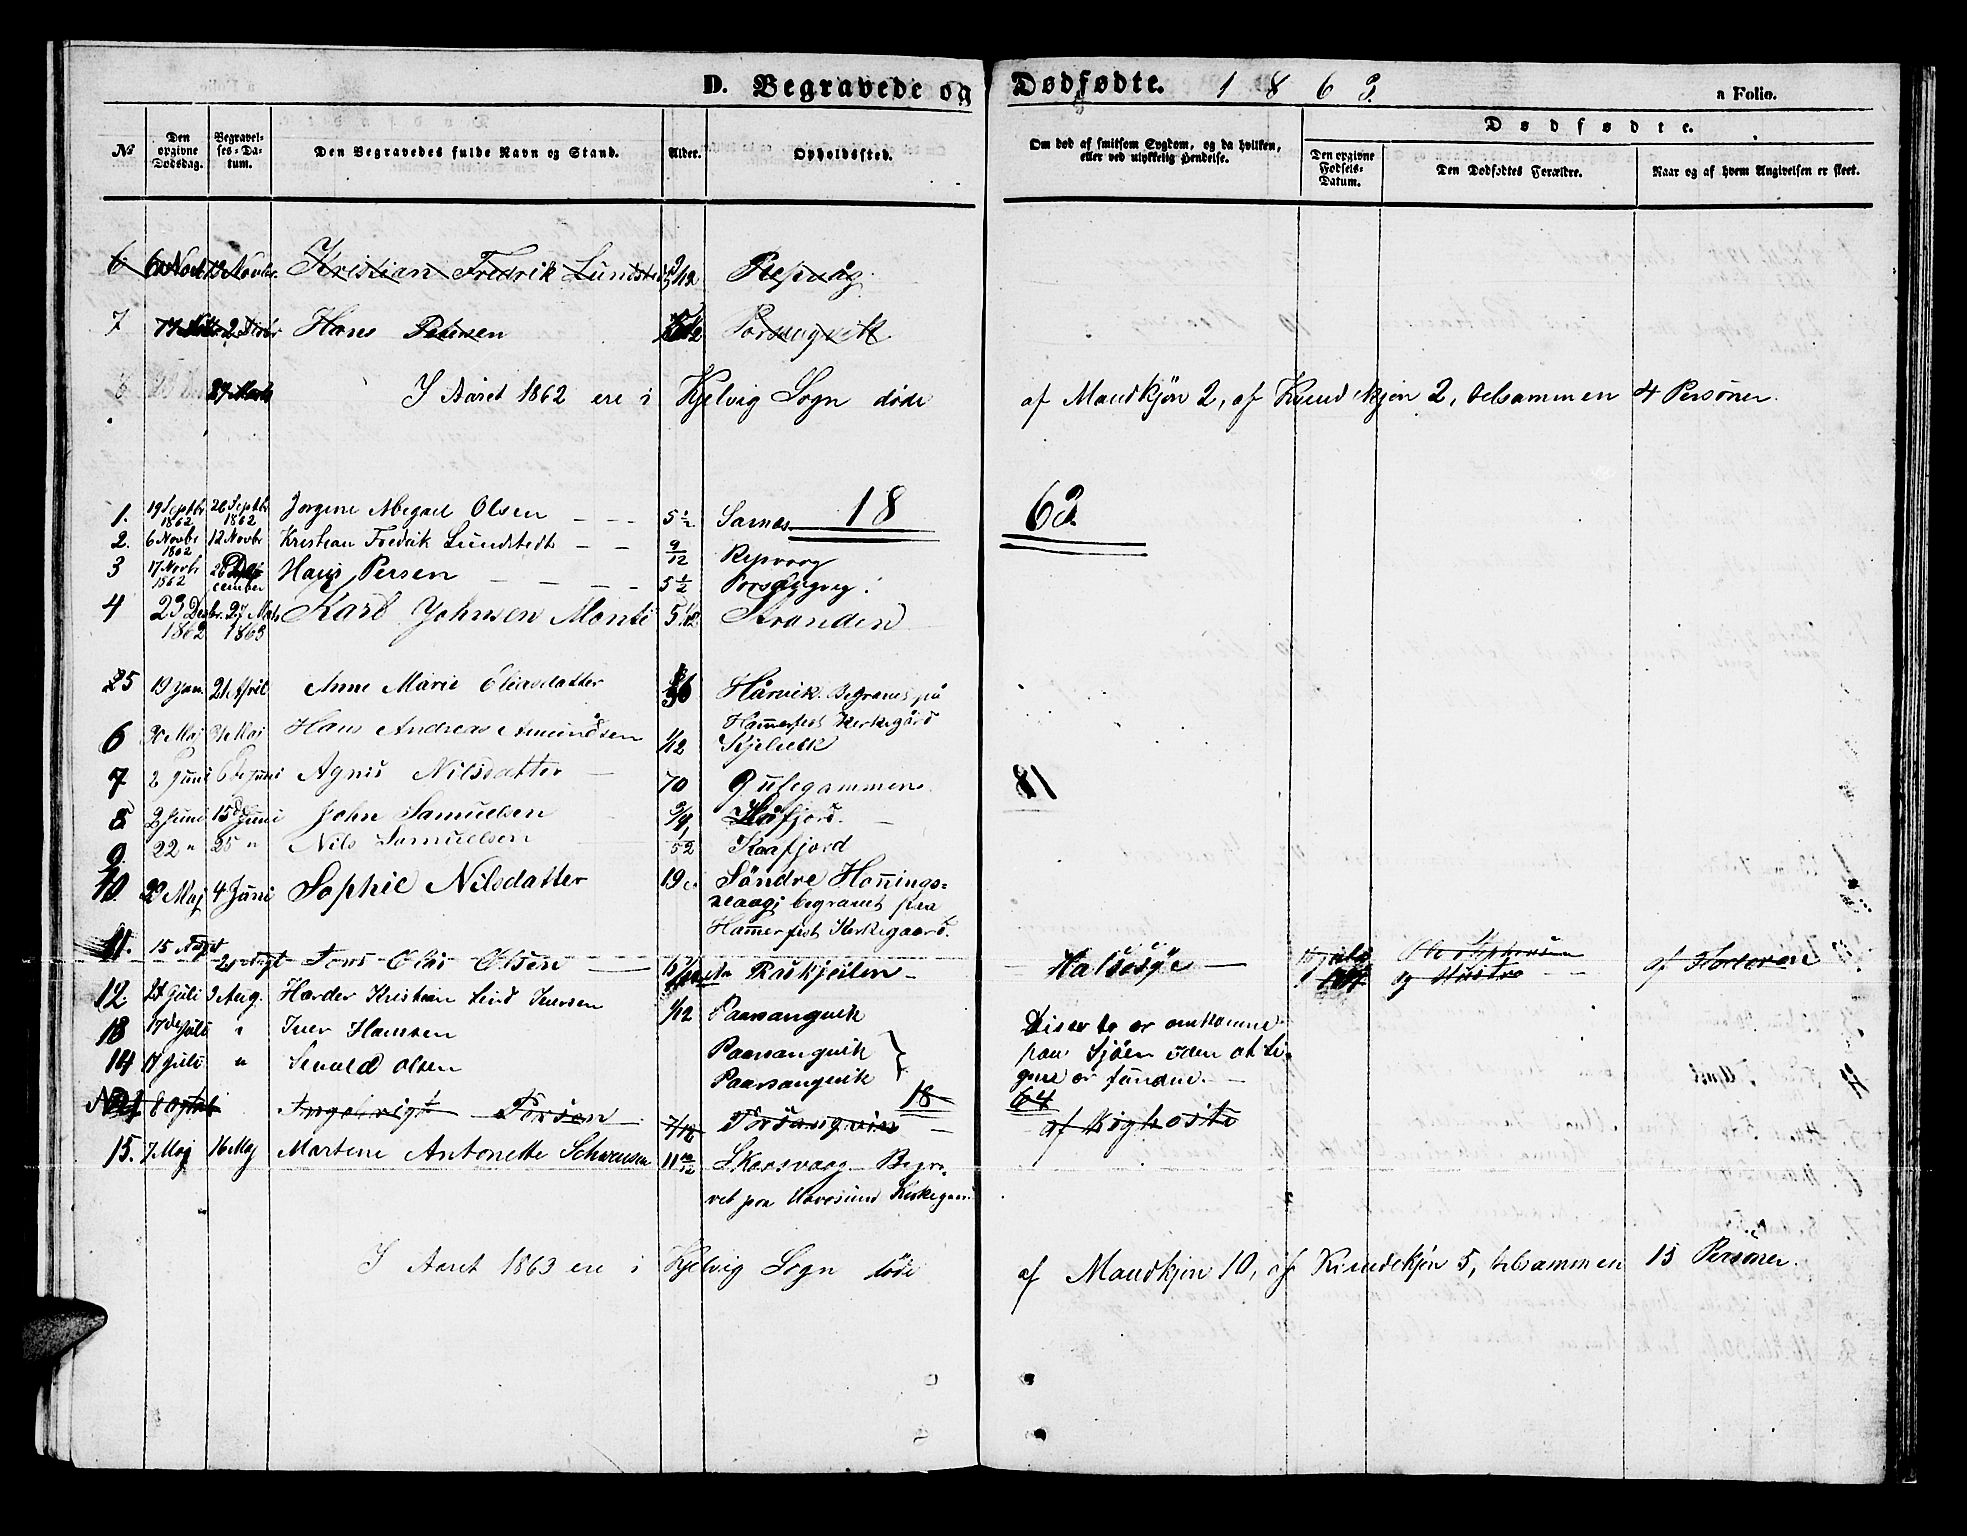 D. Begravede og Dødfødte. 1863. a Folio.
Dødfødte.
No Den opgivne Dødsdag. Begravelses-Datum. Den Begravedes fulde Navn og Stand. Alder. Opholdssted. Om død af smitsom Sygdom, og da hvilken, eller ved ulykkelig Hendelse. Den opgivne Fødsels-Datum. Den Dødfødtes Forældre. Naar og af hvem Angivelsen er skeet.
6 6 Novb 12 Novbr. Kristian Fredrik Lundstedt 9/12 Repvåg
7 17 2 Hans Petersen Porsangvik
27 Marts I Aaret 1862 ere i Kjelvig Sogn døde af Mandkjøn 2, af Kvindekjøn 2, tilsammen 4 Personer.
1863
1. 19 Septbr 1862 26 Septbr 1862 Jorgine Abegael Olsen 5 1/2 Sarnes
2. 6 Novbr 1862 12 Novbr Kristian Fredrik Lundstedt 9/12 Repvaag
3 17 Novbr 1862 26 December Hans Persen 5 1/2 Porsangvig
4 23 Desbr. 1862 27 Mars 1863 Karl Johnsen Monte 5 1/12 Stranden
5 19 Jan. 21 April Anne Marie Eliasdatter 36 Hårvik. Begravet på
Hammerfest Kirkegård
6 Maj Maj Hans Andreas Amundsen 1/12 Kjelvik
7 2 Juni 6 Juni Agnis Nilsdatter 70 Gulegammen
18
8 2 Juni 15 Juni John Samuelsen 3/4 Kåfjord.
9. 22 " 25 " Nils Samuelsen 1/52 Kaafjord
10. 20 Maj 4 Juni Sophie Nilsdatter 19 Søndre Honnings-
vaag; begravet paa
Hammerfest Kirkegaard.
11. 15 Augst Augt Tons Olai Olsen Ruskjeilen Halsesyge Ole og Hustro af Forloren
12. 24 Juli 9 Aug. Harder Kristian Lind Iversen 1/12 Paarsangvik
13 17 Juli " Iver Hansen Paarsangvik Disse to er omkomne
paa Sjøen uden at Li-
14 17 Juli " Sivald Olsen Paarsangvik gene er fundne.
1864
No 1 8 Ingebrigt Persen 7/12 Porsangvik af Kighoste
15. 7 Maj 16 Maj Martene Antonette Schwensen 11 10/12 Skarsvaag Begra-
vet paa Havøsund Kirkegaard
I Aaret 1863 ere i Kjelvig Sogn døde af Mandkjøn 10, af Kvindekjøn 5, tilsammen 15 Personer.